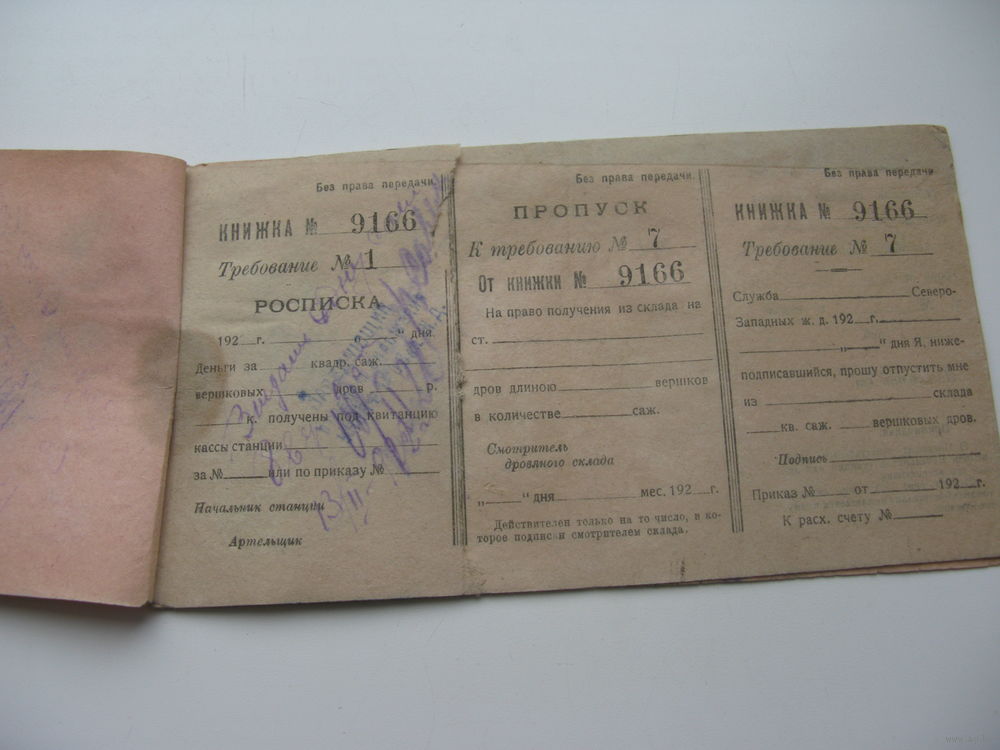 Без права передачи
КНИЖКА № 9166
Требование № 1
РОСПИСКА
192 г. „ “ дня.
Деньги за квадр. саж.
вершковых дров р.
к. получены под квитанцию
кассы станции
за № или по приказу №
Начальник станции
Артельщик
Без права передачи.
ПРОПУСК
К требованию № 7
От книжки № 9166
На право получения из склада на
ст.
дров длиною вершков
в количестве саж.
Смотритель
дровяного склада
„ “ дня мес. 192 г.
Действителен только на то число, в ко-
торое подписан смотрителем склада.
Без права передачи.
КНИЖКА № 9166
Требование № 7
Служба Северо-
Западных ж. д. 192 г.
„ “ дня Я, ниже-
подписавшийся, прошу отпустить мне
из склада
кв. саж. вершковых дров.
Подпись
Приказ № от 192 г.
К расх. счету №